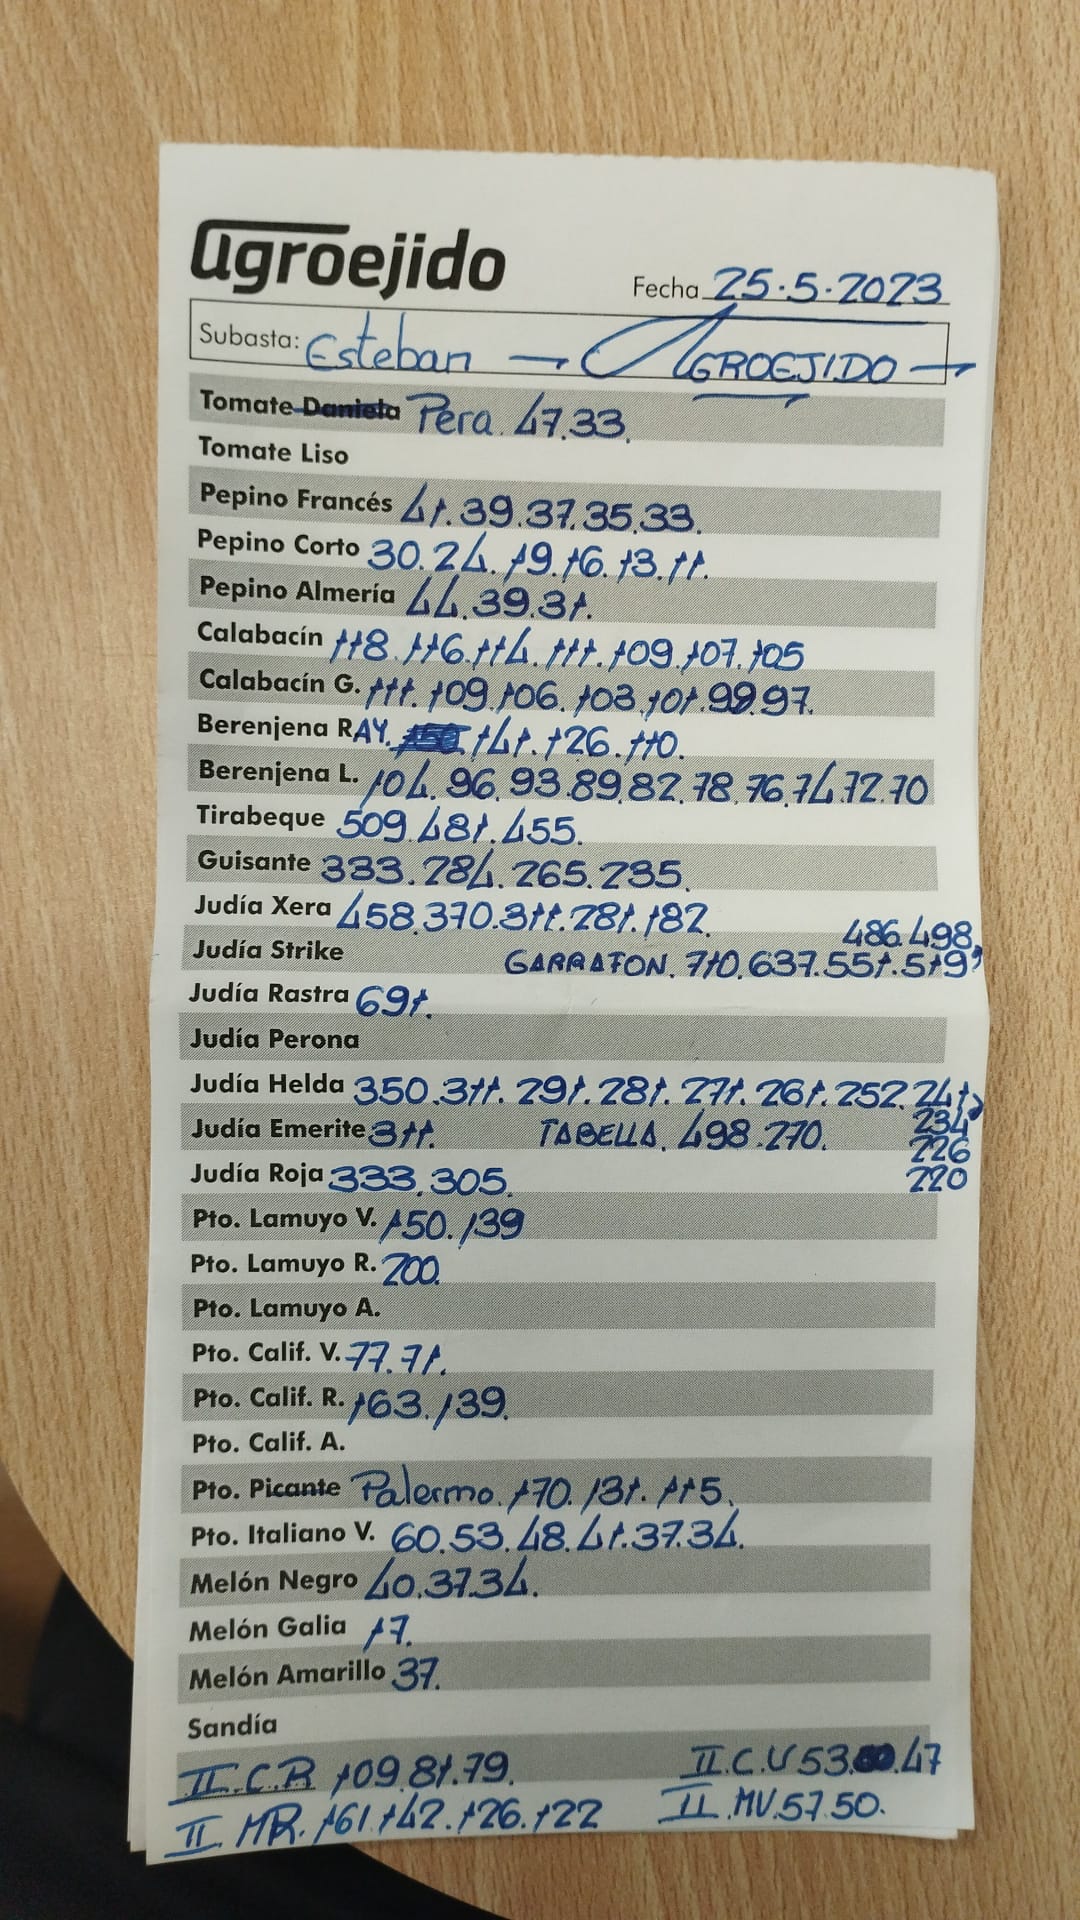 agroejido
Fecha 25.5.2023
Subasta: Esteban → AGROEJIDO
Tomate Daniela Pera. 47.33.
Tomate Liso
Pepino Francés 41.39.37.35.33.
Pepino Corto 30.24.19.16.13.11.
Pepino Almería 44.39.31.
Calabacín 118.116.114.111.109.107.105
Calabacín G. 111.109.106.103.101.99.97.
Berenjena RAY. 141.126.110.
Berenjena L. 104.96.93.89.82.78.76.74.72.70
Tirabeque 509.481.455.
Guisante 333.284.265.235.
Judía Xera 458.370.311.281.182.
486.498,
Judía Strike GARRAFON. 710.637.551.519,
Judía Rastra 691.
Judía Perona
Judía Helda 350.311.291.281.271.261.252.241,
234
Judía Emerite 311. TABELLA. 498.270.
226
Judía Roja 333.305.
220
Pto. Lamuyo V. 150.139
Pto. Lamuyo R. 200.
Pto. Lamuyo A.
Pto. Calif. V. 77.71.
Pto. Calif. R. 163.139.
Pto. Calif. A.
Pto. Picante Palermo. 170.131.115.
Pto. Italiano V. 60.53.48.41.37.34.
Melón Negro 40.37.34.
Melón Galia 17.
Melón Amarillo 37.
Sandía
II.C.R 109.81.79. II.C.V 53.47
II MR. 161.142.126.122 II.MV.57.50.